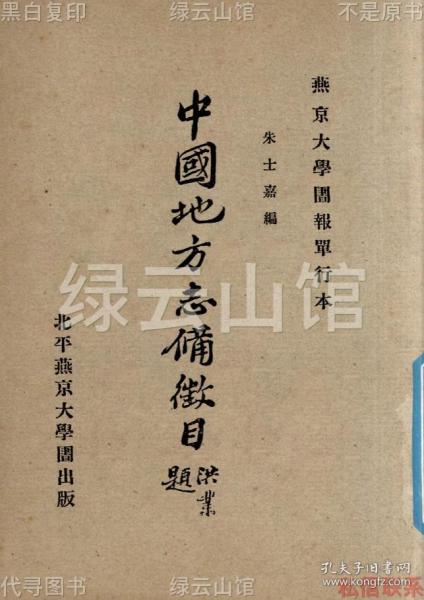 黑白复印 绿云山馆 不是原书
燕京大學圕報單行本
朱士嘉編
中國地方志備徵目
洪業
題
北平燕京大學圕出版
绿云山馆
孔夫子旧书网
www.kongfz.com
代寻图书 绿云山馆 私信联系